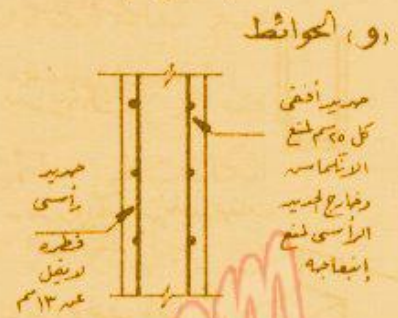 (و) الحوائط
حديد أفقى
كل ٢٥ سم لمنع
الانكماش
وخارج الحديد
الرأسى لمنع
إنبعاجه
حديد
رأسى
قطره
لا يقل
عن ١٣ مم